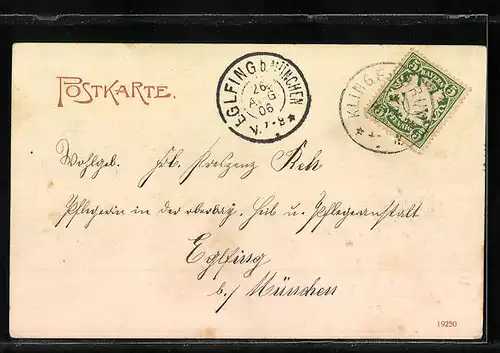 POSTKARTE.
EGLFING b. MÜNCHEN
26
AUG
06
V. 7-8
KLINGE
BAYERN
5 5
5 5
PFENNIG
Wohlgeb. Frl. Kreszenz Reh
Pflegerin in der oberbay. Heil u. Pflegeanstalt
Eglfing
b./ München
19250